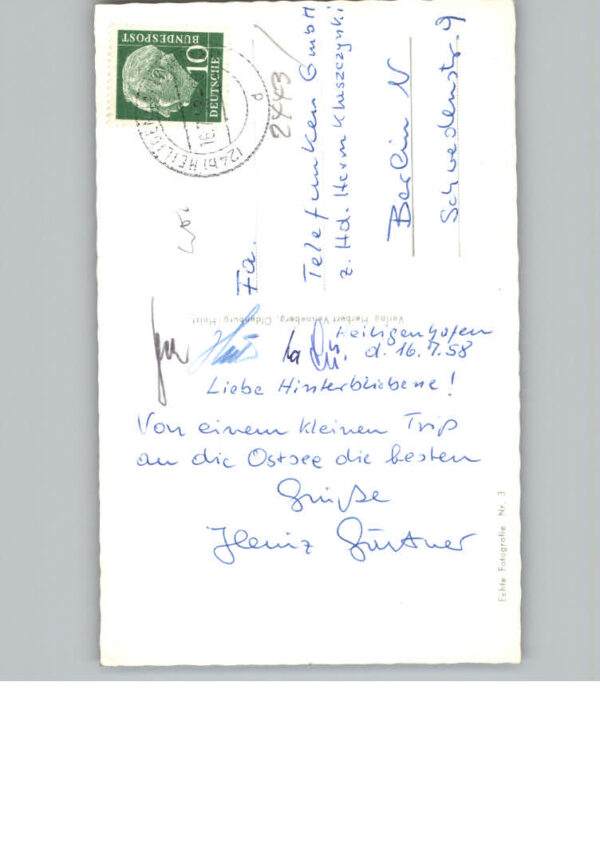 Heiligenhafen
d. 16.7.58
Liebe Hinterbliebene!
Von einem kleinen Trip
an die Ostsee die besten
Grüße
Heinz Gürtner
Fa.
Telefunken GmbH
z. Hd. Herrn Kluszczynki
Berlin N
Schwedenstr. 9
2443
DEUTSCHE
BUNDESPOST
10
(24b) HEILIGEN
d
Verlag Herbert Venneberg, Oldenburg/Holst.
Echte Fotografie Nr. 3